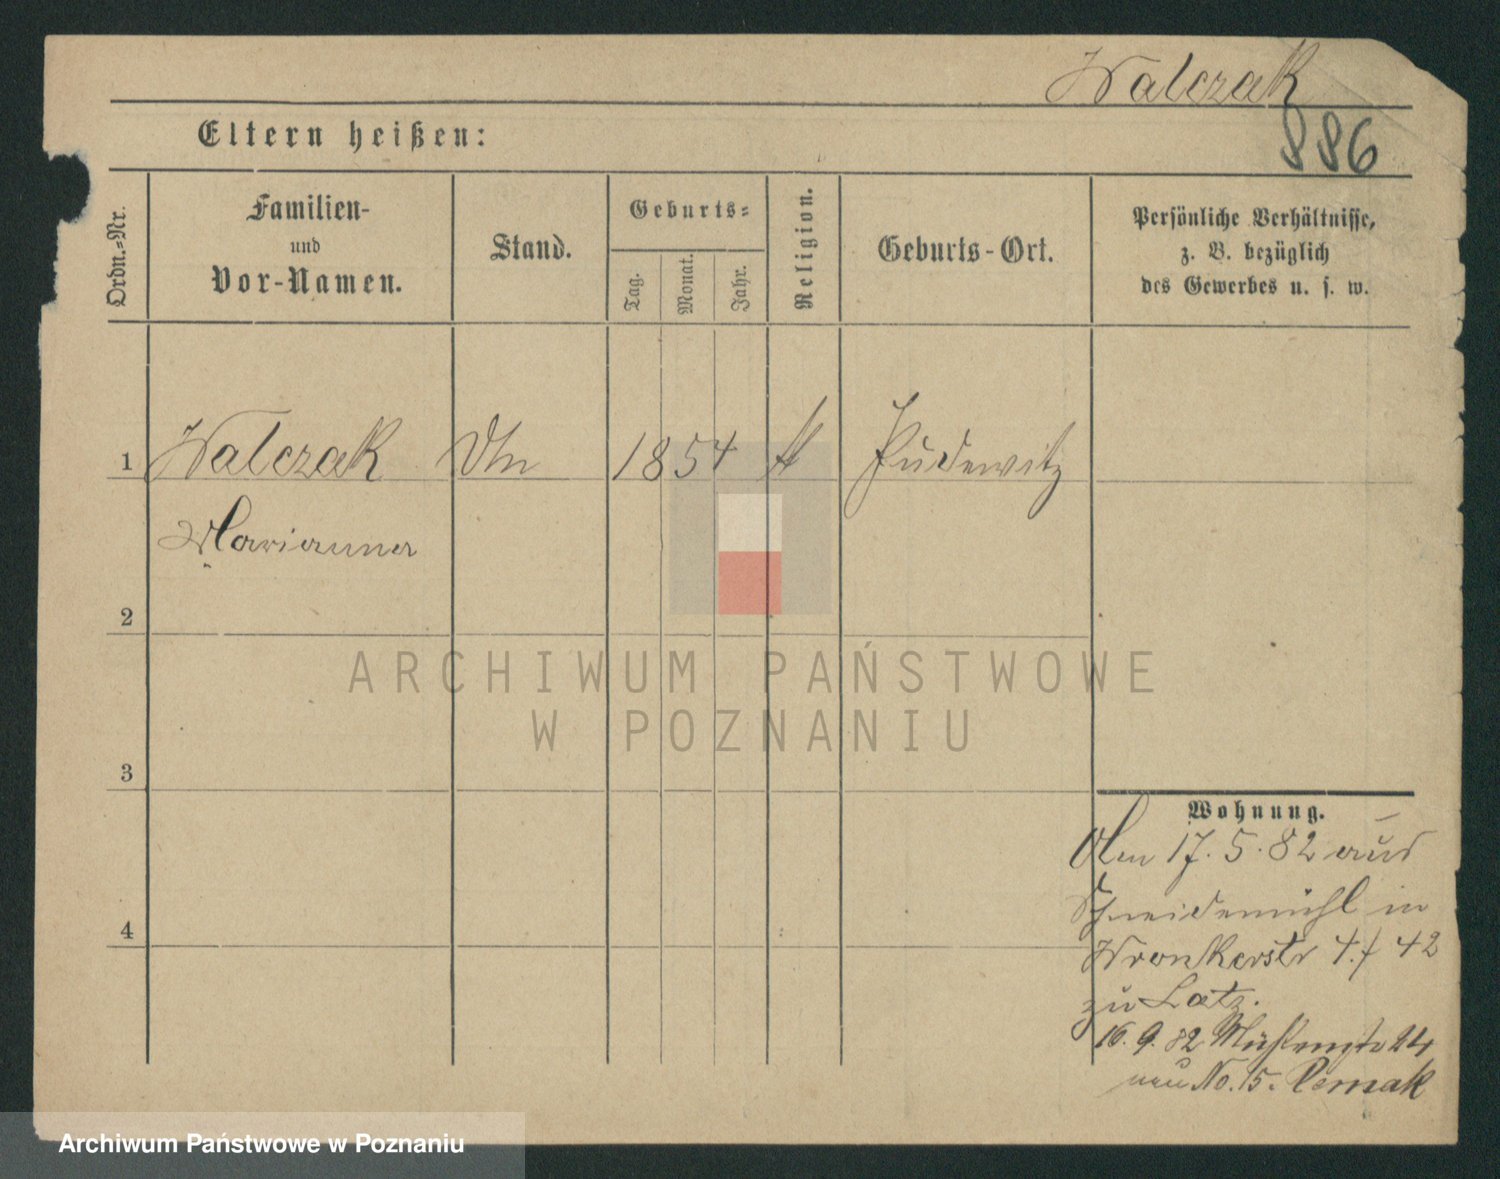 Walczak
886
Eltern heißen:
Ordn.-Nr.
Familien-
und
Vor-Namen.
Stand.
Geburts-
Tag.
Monat.
Jahr.
Religion.
Geburts-Ort.
Persönliche Verhältnisse,
z. B. bezüglich
des Gewerbes u. s. w.
1
Walczak
1854
Pudewitz
Marianna
2
3
4
Wohnung.
17. 5. 82 aus
Schneidemühl in
Wronkerstr 4 / 42
zu Latz.
16. 9. 82 24
neu No. 15.
ARCHIWUM PAŃSTWOWE
W POZNANIU
Archiwum Państwowe w Poznaniu